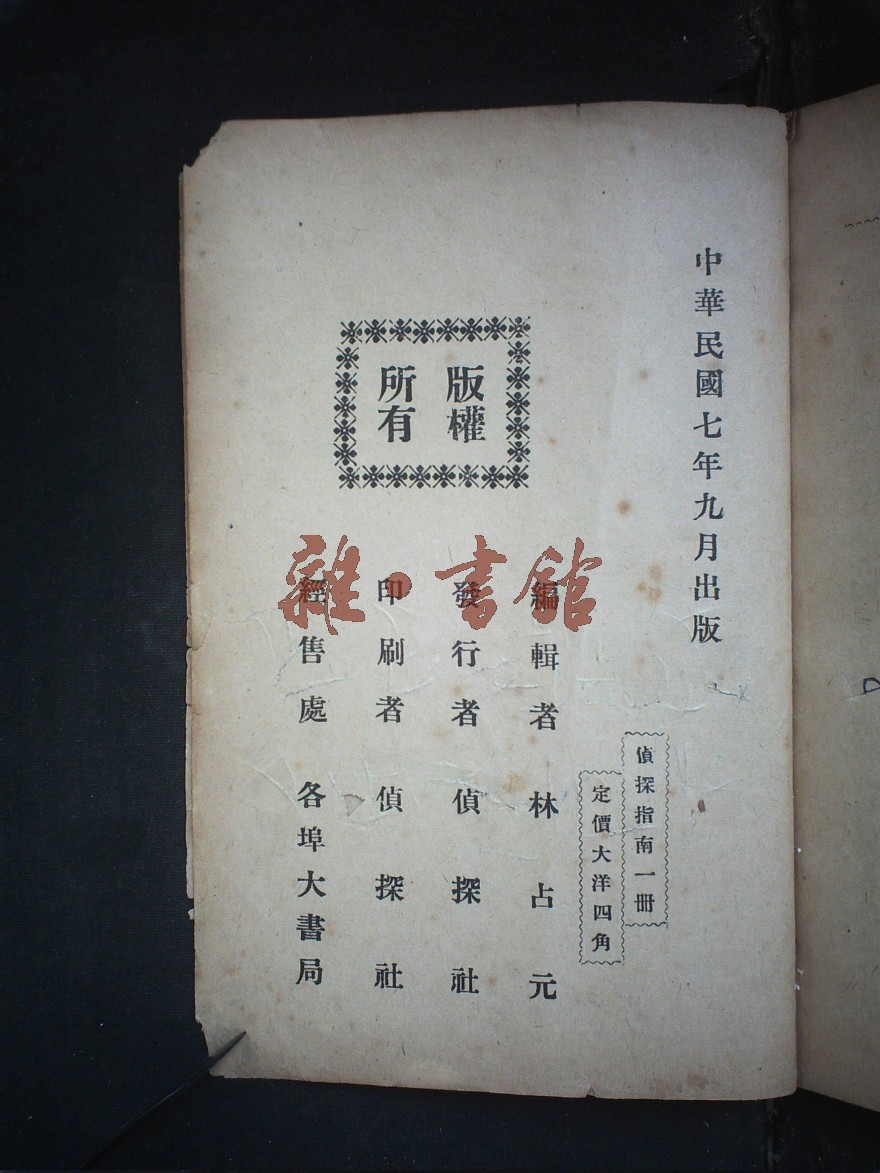 中華民國七年九月出版
偵探指南一冊
定價大洋四角
版權
所有
編輯者林占元
發行者偵探社
印刷者偵探社
經售處各埠大書局
雜·書館